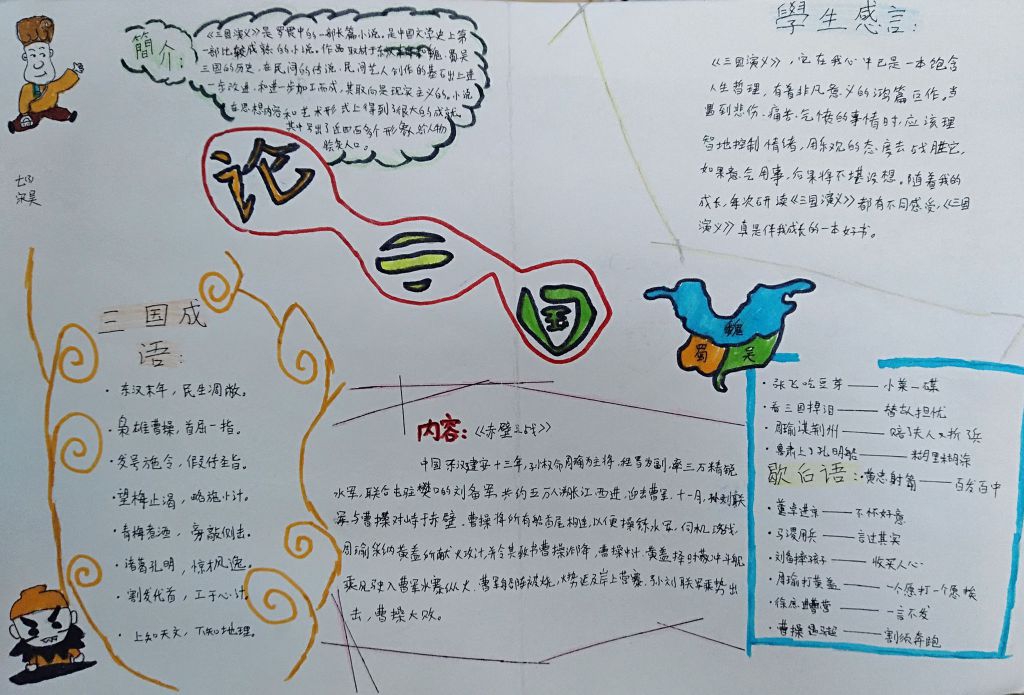 簡介:
《三国演义》是罗贯中的一部长篇小说,是中国文学史上第
一部比较成熟的小说。作品取材于东汉末年和魏、蜀吴
三国的历史,在民间的传说,民间艺人创作的基石出上进
一步改进,和进一步加工而成,其取向是现实主义的。小说
在思想内容和艺术形式上得到了很大的成就。
其中写出了近四百多个形象,给人物
脍炙人口。
七四
宋昊
论三国
學生感言:
《三国演义》,它在我心中已是一本饱含
人生哲理,有着非凡意义的鸿篇巨作。当
遇到悲伤、痛苦、气愤的事情时,应该理
智地控制情绪,用乐观的态度去战胜它。
如果意气用事,后果将不堪设想。随着我的
成长,每次研读《三国演义》都有不同感受,《三国
演义》真是伴我成长的一本好书。
魏
蜀
吴
三国成
语:
·东汉末年,民生凋敝。
·枭雄曹操,首屈一指。
·发号施令,假传圣旨。
·望梅止渴,略施小计。
·青梅煮酒,旁敲侧击。
·诸葛孔明,惊才风逸。
·割发代首,工于心计。
·上知天文,下知地理。
内容:《赤壁之战》
中国东汉建安十三年,孙权命周瑜为主将,程普为副,率三万精锐
水军,联合屯驻樊口的刘备军,共约五万人溯长江西进,迎击曹军,十一月,孙刘联
军与曹操对峙于赤壁。曹操将所有船首尾相连,以便操练水军,伺机攻战。
周瑜采纳黄盖所献火攻计,并令其致书曹操诈降,曹操中计,黄盖择时载冲斗舰
乘风驶入曹军水寨纵火。曹军船阵被烧,火势延及岸上营寨,孙刘联军乘势出
击,曹操大败。
·张飞吃豆芽——小菜一碟
·看三国掉泪——替古担忧
·周瑜谋荆州——赔了夫人又折兵
·鲁肃上了孔明船——糊里糊涂
歇后语:·黄忠射箭——百发百中
·董卓进京——不怀好意
·马谡用兵——言过其实
·刘备摔孩子——收买人心
·周瑜打黄盖——一个愿打一个愿挨
·徐庶进曹营——一言不发
·曹操遇马超——割须奔跑